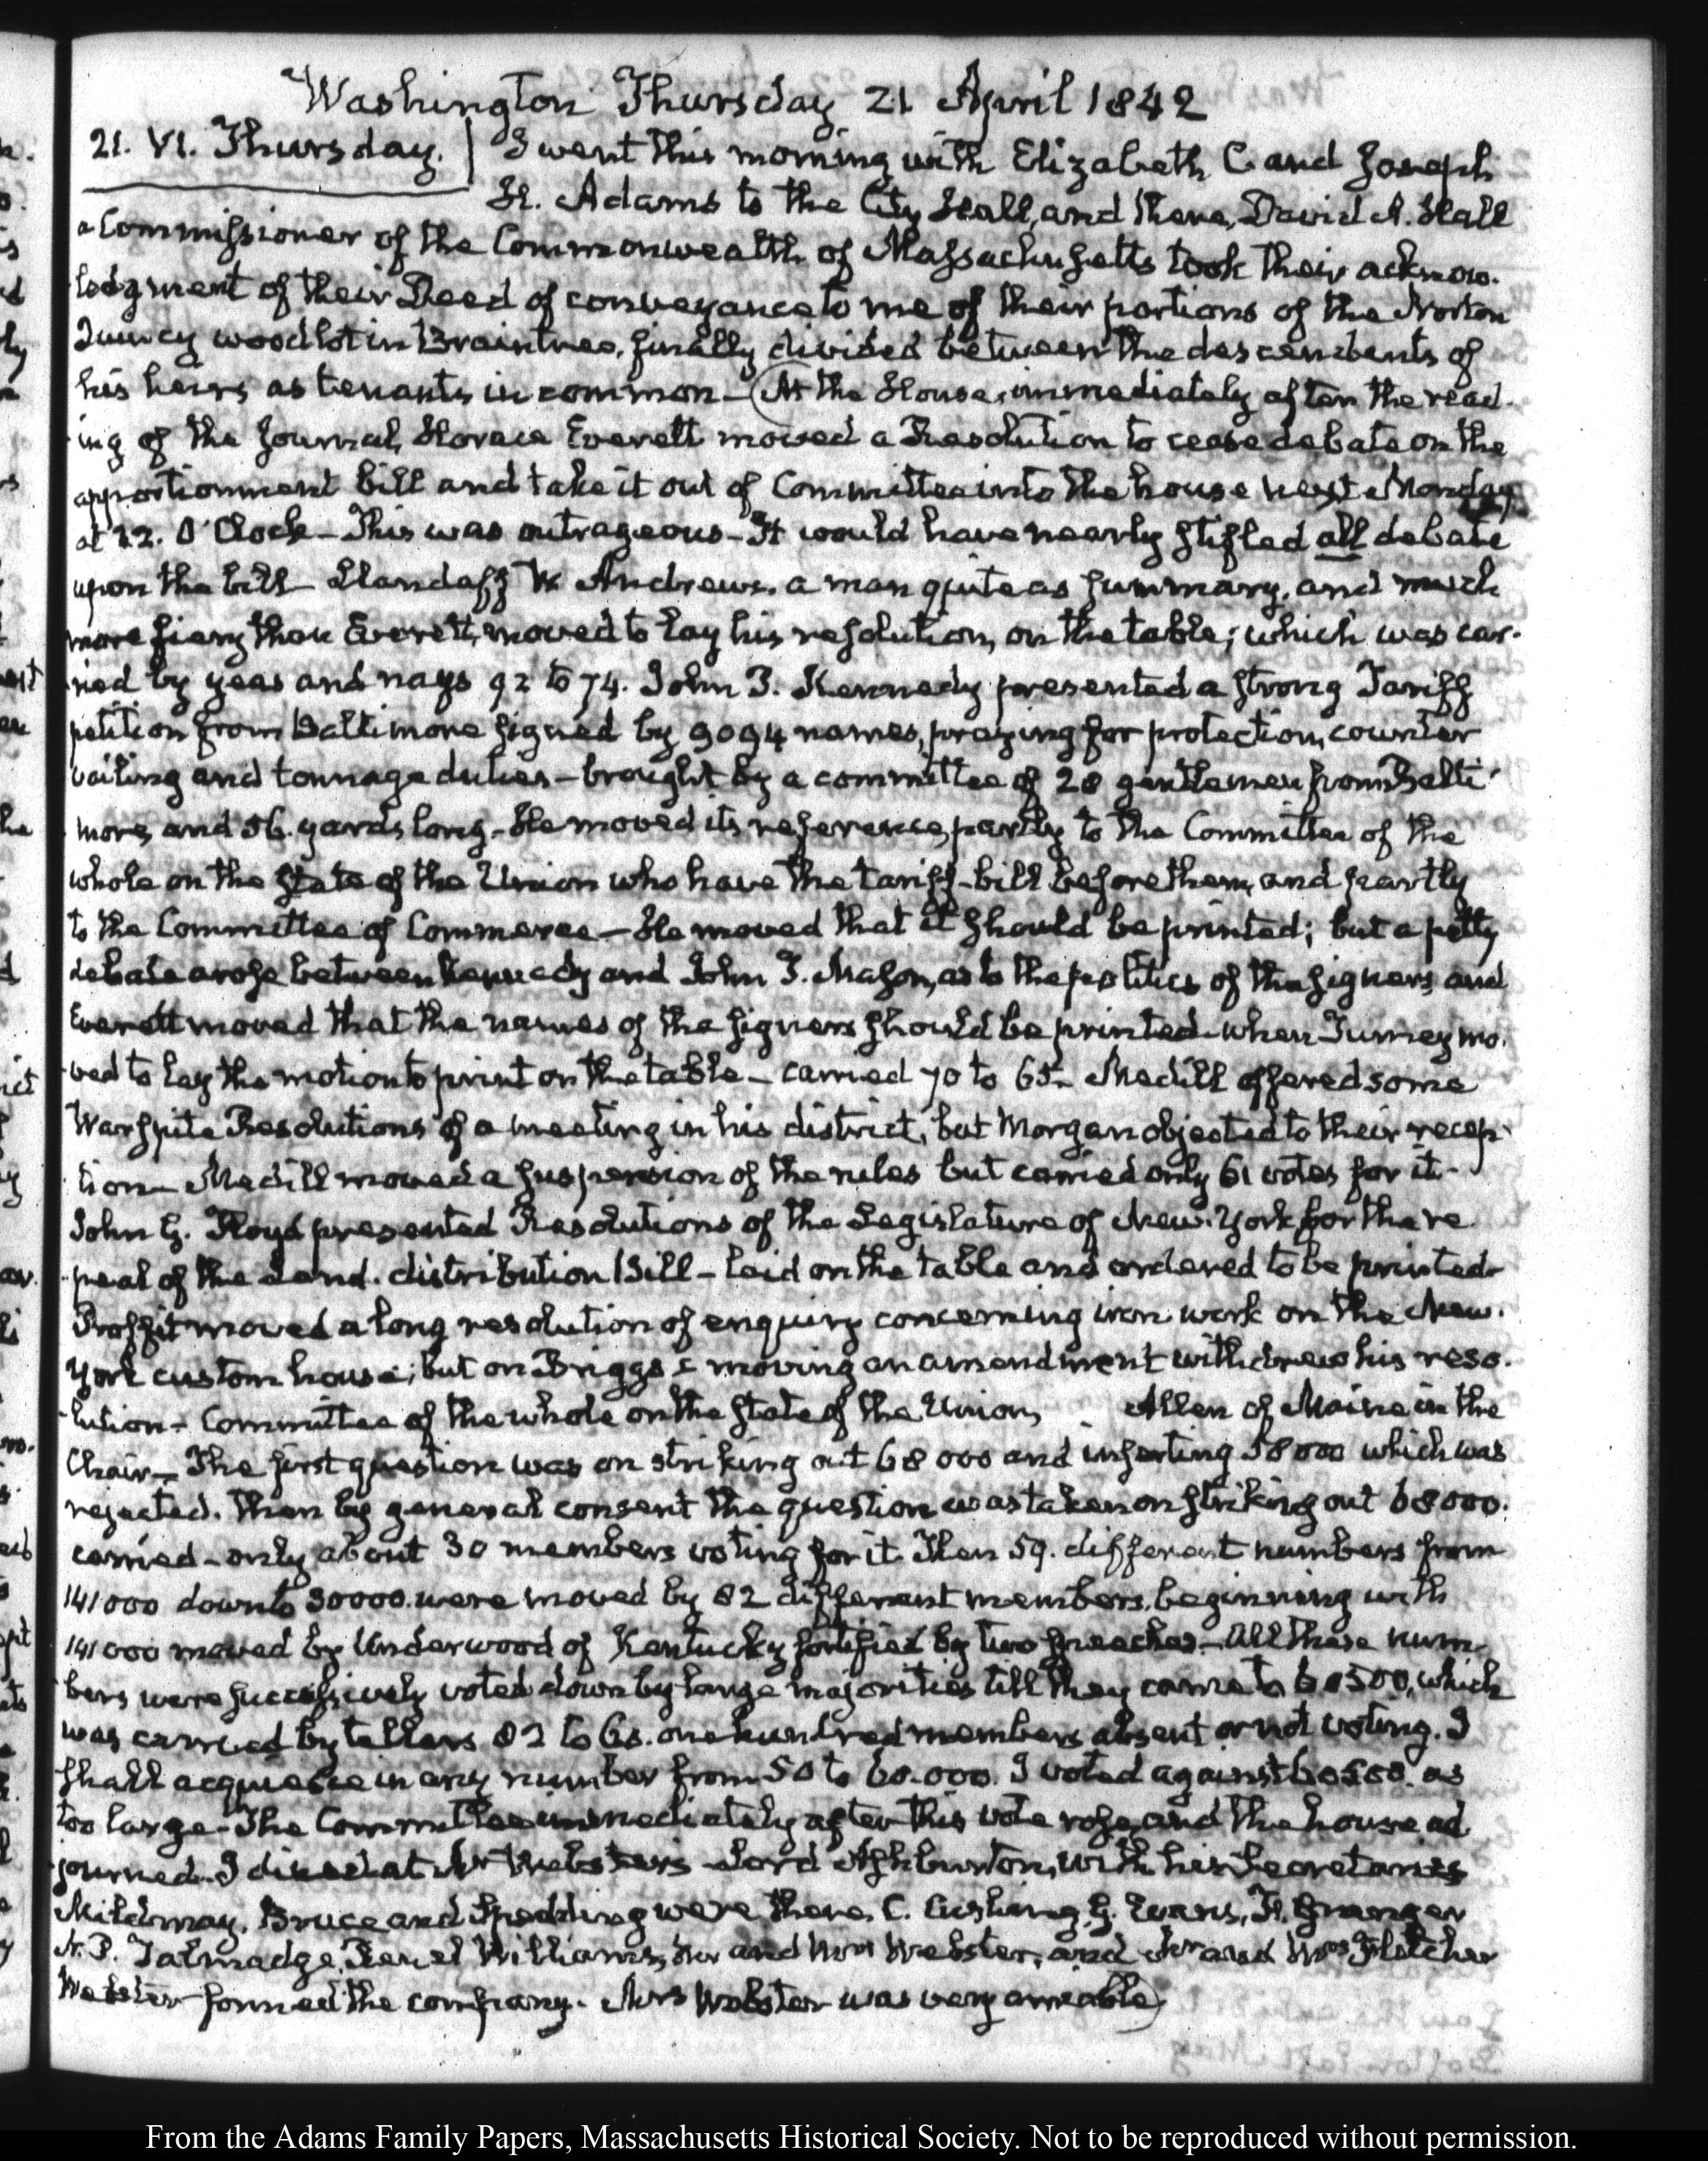 Washington Thursday 21 April 1842
21. VI. Thursday. | I went this morning with Elizabeth C and Joseph
H. Adams to the City Hall, and there, David A. Hall
a Commissioner of the Commonwealth of Massachusetts took their acknow-
ledgment of their Deed of conveyance to me of their portions of the Norton
Quincy woodlot in Braintree, finally divided between the descendents of
his heirs as tenants in common - (At the House, immediately after the read-
ing of the Journal, Horace Everett moved a Resolution to cease debate on the
apportionment bill and take it out of Committee into the house next Monday
at 12. O'Clock - This was outrageous - It would have nearly stifled all debate
upon the bill - Landaff W Andrews, a man quite as summary, and much
more fiery than Everett, moved to lay his resolution, on the table; which was car-
ried by yeas and nays 92 to 74. John P. Kennedy presented a strong Tariff
petition from Baltimore signed by 9094 names, praying for protection, counter
vailing and tonnage duties - brought by a committee of 28 gentlemen from Balti-
more, and 56. yards long - He moved its reference, partly to the Committee of the
whole on the state of the Union who have the tariff-bill before them, and partly
to the Committee of Commerce - He moved that it should be printed; but a petty
debate arose between Kennedy and John T. Mason, as to the politics of the signers, and
Everett moved that the names of the signers should be printed - when Turney mo-
ved to lay the motion to print on the table - carried 70 to 65 - Medill offered some
Warspite Resolutions of a meeting in his district, but Morgan objected to their recep-
tion - Medill moved a suspension of the rules but carried only 61 votes for it -
John G. Floyd presented Resolutions of the Legislature of New-York for the re-
peal of the Land-distribution Bill - laid on the table and ordered to be printed -
Proffit moved a long resolution of enquiry concerning iron work on the New-
York custom house; but on Briggs's moving an amendment withdrew his reso-
lution - Committee of the whole on the state of the Union, Allen of Maine in the
Chair - The first question was on striking out 68 000 and inserting 58 000 which was
rejected. Then by general consent the question was taken on striking out 68000.
carried - only about 30 members voting for it. Then 59. different numbers from
141 000 down to 30000. were moved by 82 different members, beginning with
141 000 moved by Underwood of Kentucky fortified by two speeches - All these num-
bers were successively voted down by large majorities till they came to 60500, which
was carried by tellers 82 to 60. one hundred members absent or not voting. I
shall acquiesce in any number from 50 to 60.000. I voted against 60500. as
too large - The Committee immediately after this vote rose, and the house ad-
journed - I dined at Mr Webster's - Lord Ashburton, with his Secretaries
Mildmay, Bruce and Spedding were there, C. Cushing, G. Evans, F. Granger
N. P. Talmadge, Reuel Williams, Mr and Mrs Webster, and Mr and Mrs Fletcher
Webster formed the company. Mrs Webster was very amiable)
From the Adams Family Papers, Massachusetts Historical Society. Not to be reproduced without permission.